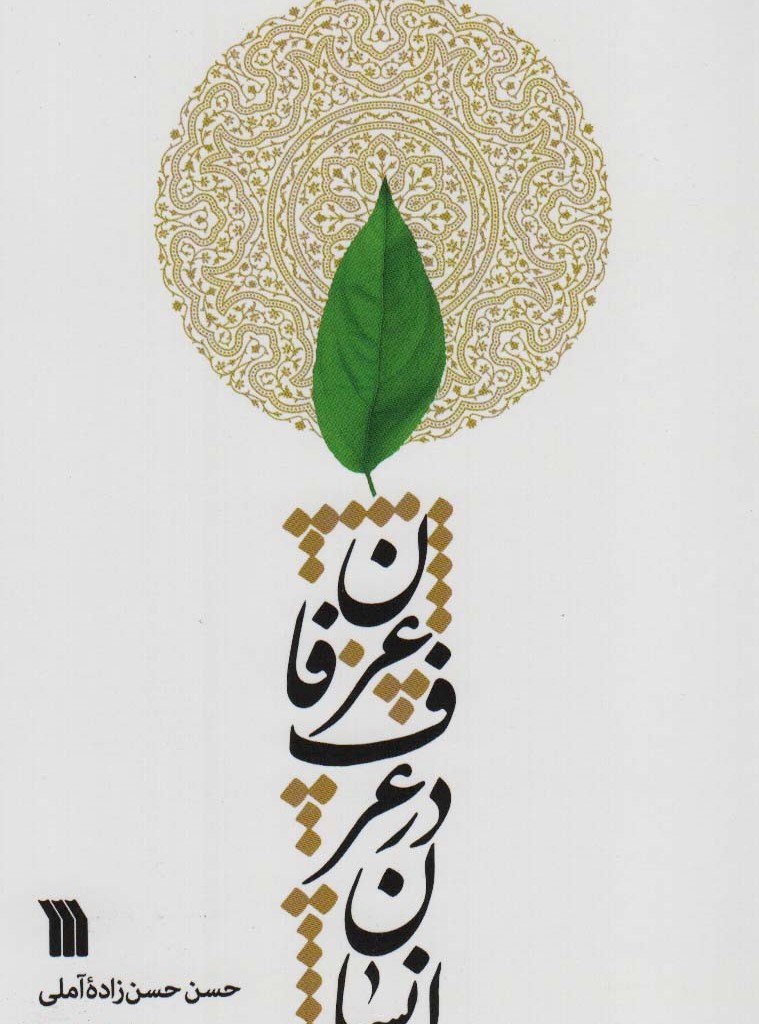 انسان
در عرف
عرفان
حسن حسن‌زادهٔ آملی